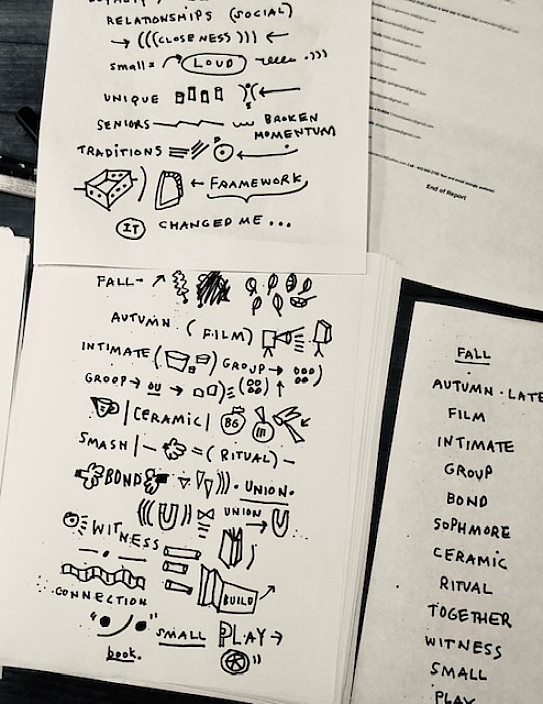 RELATIONSHIPS (SOCIAL)
→ (((CLOSENESS))) ←
small = LOUD
UNIQUE
SENIORS BROKEN
MOMENTUM
TRADITIONS
← FRAMEWORK
IT CHANGED ME...
End of Report
FALL
AUTUMN. (FILM)
INTIMATE ( ) GROUP →
GROOP → OU →
|CERAMIC| B6
SMASH | = (RITUAL) -
BOND . UNION.
UNION →
WITNESS
BUILD
CONNECTION
SMALL PLAY →
book.
FALL
AUTUMN · LATE
FILM
INTIMATE
GROUP
BOND
SOPHMORE
CERAMIC
RITUAL
TOGETHER
WITNESS
SMALL
PLAY